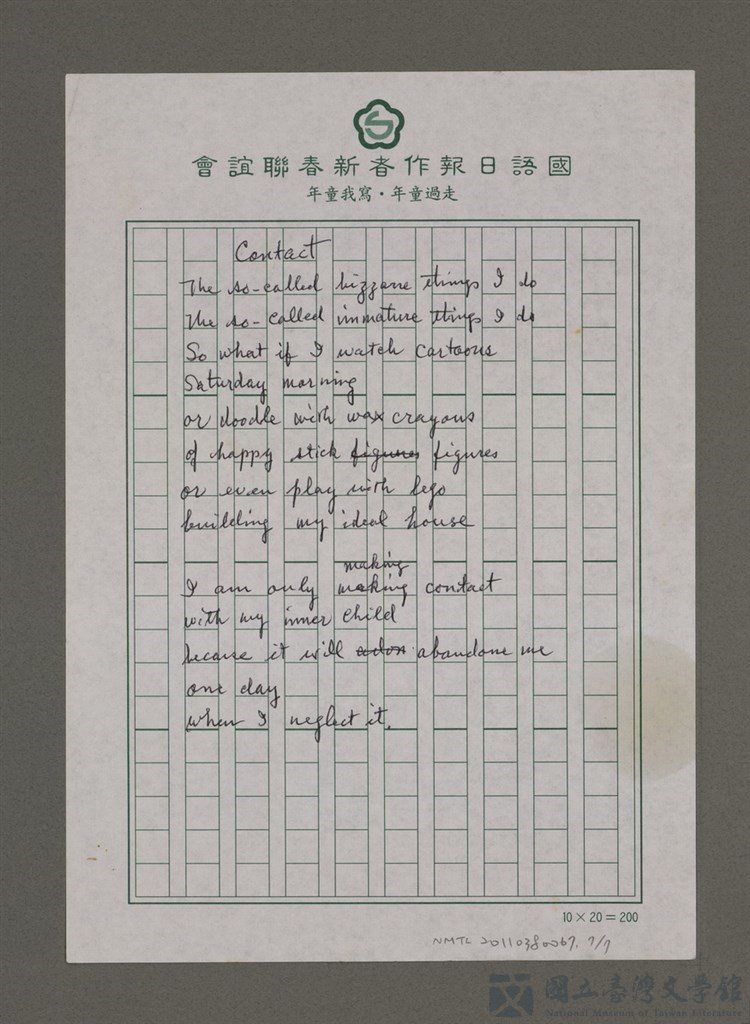 會誼聯春新者作報日語國
年童我寫・年童過走
Contact
The so-called bizzare things I do
The so-called immature things I do
So what if I watch cartoons
Saturday morning
or doodle with wax crayons
of happy stick figures figures
or even play with lego
building my ideal house
making
I am only making contact
with my inner child
because it will abandone me
one day
when I neglect it.
10 × 20 = 200
NMTL 20110380067. 7/7
國立臺灣文學館
National Museum of Taiwan Literature